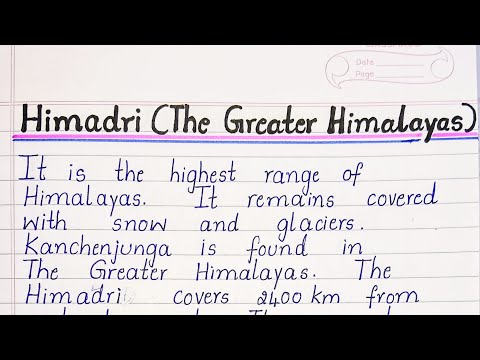 Date
Page
Himadri (The Greater Himalayas)
It is the highest range of
Himalayas. It remains covered
with snow and glaciers.
Kanchenjunga is found in
The Greater Himalayas. The
Himadri covers 2400 km from